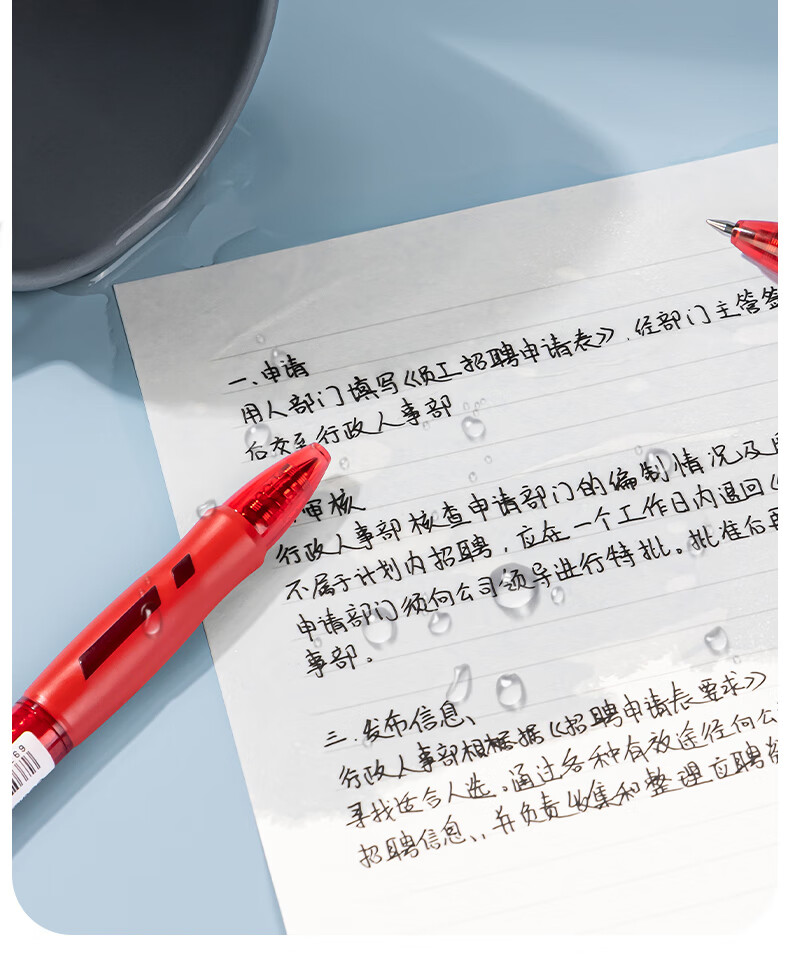 一、申请
用人部门填写《员工招聘申请表》，经部门主管签
后交至行政人事部
审核
行政人事部核查申请部门的编制情况及用
不属于计划内招聘，应在一个工作日内退回《
申请部门须向公司领导进行特批。批准后再
事部。
三、发布信息、
行政人事部根据《招聘申请表要求》
寻找适合人选。通过各种有效途径向公
招聘信息、，并负责收集和整理应聘资
69